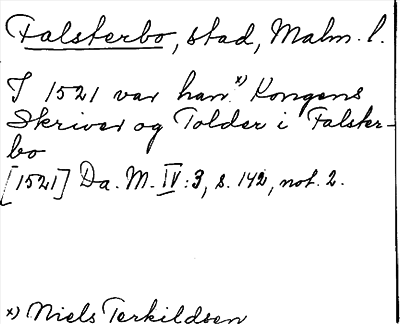 Falsterbo, stad, Malm. l.
I 1521 var han x) Kongens
Skriver og Tolder i Falster-
bo
[1521] Da. M. IV:3, s. 142, not. 2.
x) Niels Terkildsen